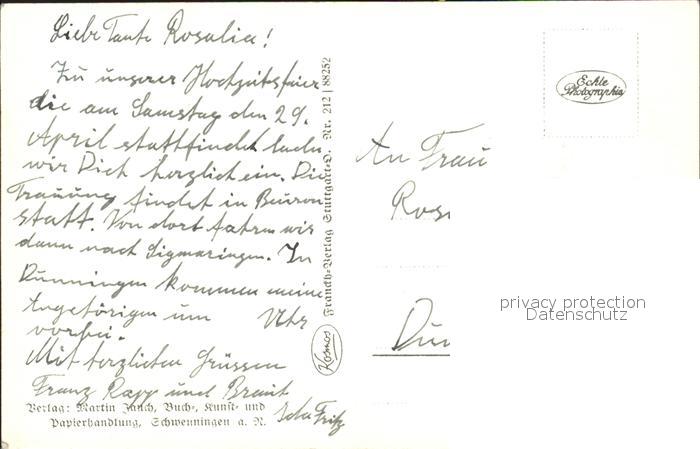 Liebe Tante Rosalia!
Zu unserer Hochzeitsfeier
die am Samstag den 29.
April stattfindet laden
wir Dich herzlich ein. Die
Trauung findet in Beuron
statt. Von dort fahren wir
dann nach Sigmaringen. In
Dunningen kommen meine
Angehörigen um Uhr
vorbei.
Mit herzlichen Grüssen
Franz Rapp und Braut
Ida Fritz
Verlag: Martin Jauch, Buch-, Kunst- und
Papierhandlung, Schwenningen a. N.
Kosmos
Franckh-Verlag Stuttgart-O. Nr. 212 | 88252
Echte
Photographie
An Frau
Ros
Dun
privacy protection
Datenschutz